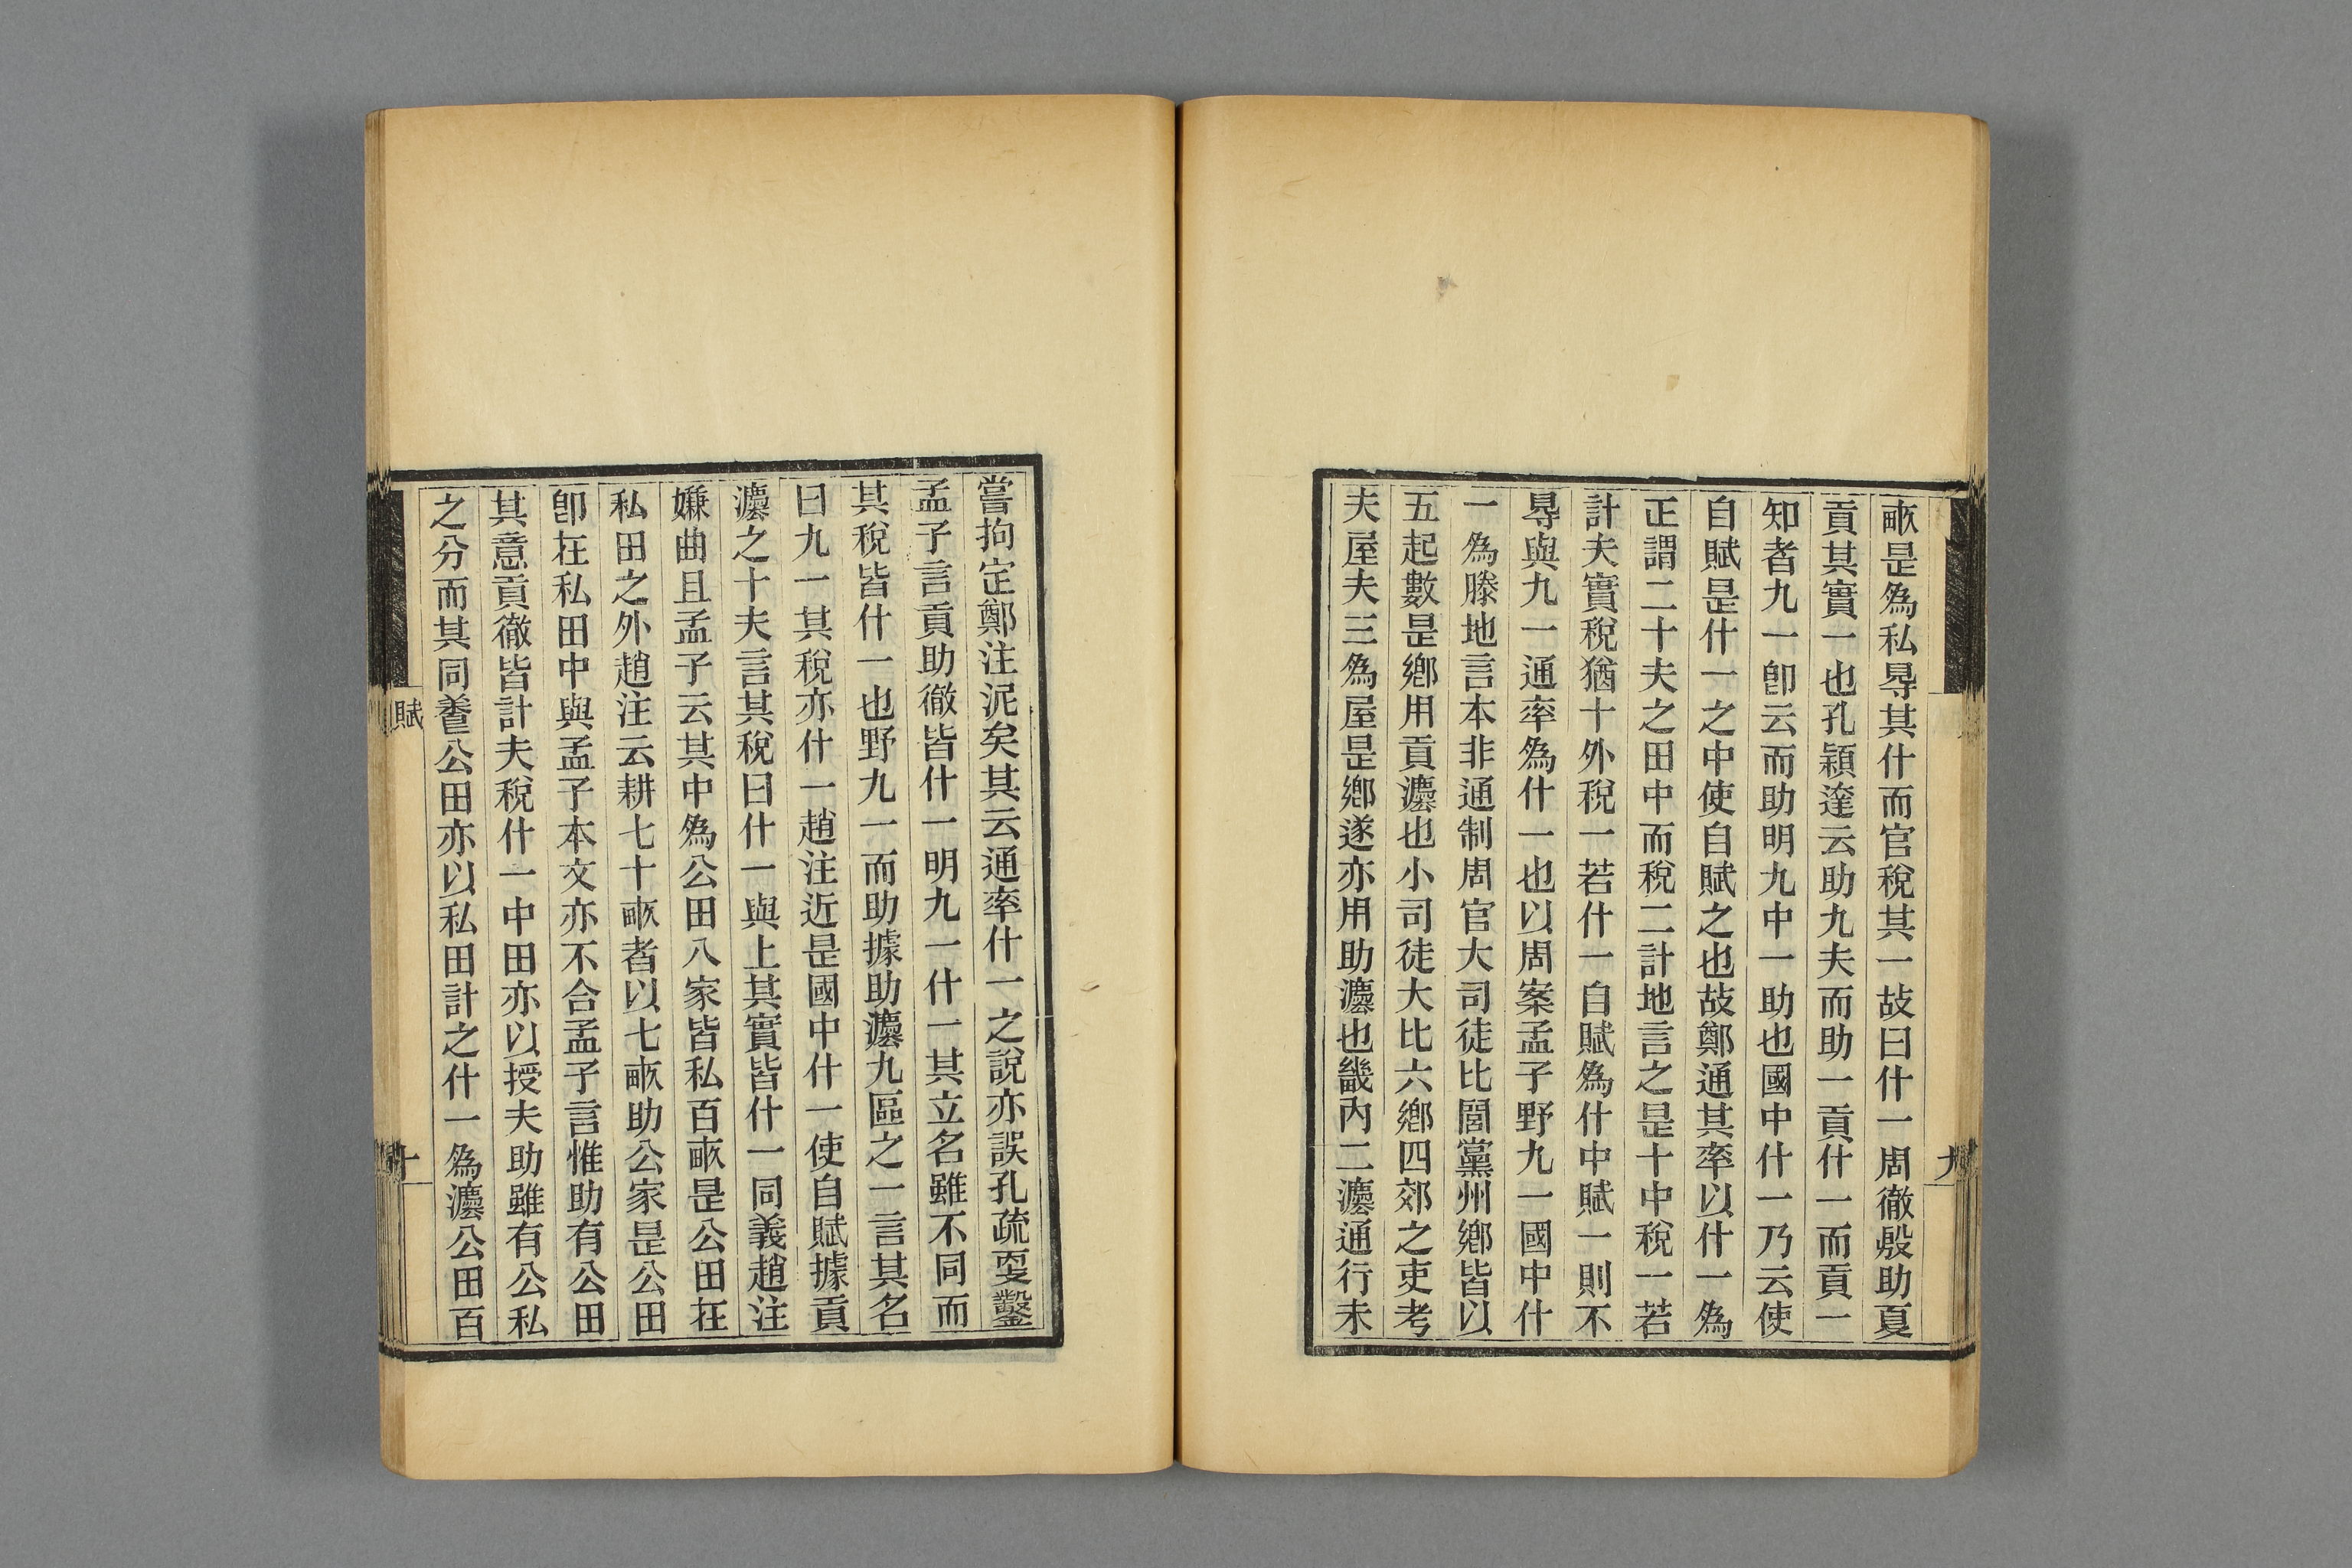 畞是爲私㝵其什而官稅其一故曰什一周徹殷助夏
貢其實一也孔穎達云助九夫而助一貢什一而貢一
知者九一卽云而助明九中一助也國中什一乃云使
自賦是什一之中使自賦之也故鄭通其率以什一爲
正謂二十夫之田中而稅二計地言之是十中稅一若
計夫實稅猶十外稅一若什一自賦爲什中賦一則不
㝵與九一通率爲什一也以周案孟子野九一國中什
一爲滕地言本非通制周官大司徒比閭黨州鄉皆以
五起數是鄉用貢灋也小司徒大比六鄉四郊之吏考
夫屋夫三爲屋是鄉遂亦用助灋也畿內二灋通行未
九
嘗拘定鄭注泥矣其云通率什一之說亦誤孔疏耎鑿
孟子言貢助徹皆什一明九一什一其立名雖不同而
其稅皆什一也野九一而助據助灋九區之一言其名
曰九一其稅亦什一趙注近是國中什一使自賦據貢
灋之十夫言其稅曰什一與上其實皆什一同義趙注
嫌曲且孟子云其中爲公田八家皆私百畞是公田在
私田之外趙注云耕七十畞者以七畞助公家是公田
卽在私田中與孟子本文亦不合孟子言惟助有公田
其意貢徹皆計夫稅什一中田亦以授夫助雖有公私
之分而其同養公田亦以私田計之什一爲灋公田百
賦
十